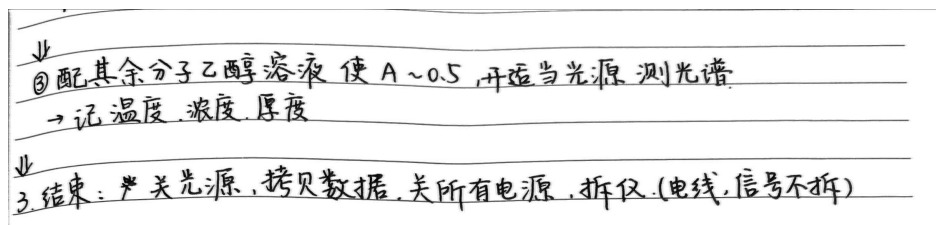 ⇓
③配其余分子乙醇溶液 使 A~0.5,开适当光源 测光谱.
→ 记温度.浓度.厚度
⇓
3.结束: 关光源,拷贝数据.关所有电源,拆仪.(电线,信号不拆)